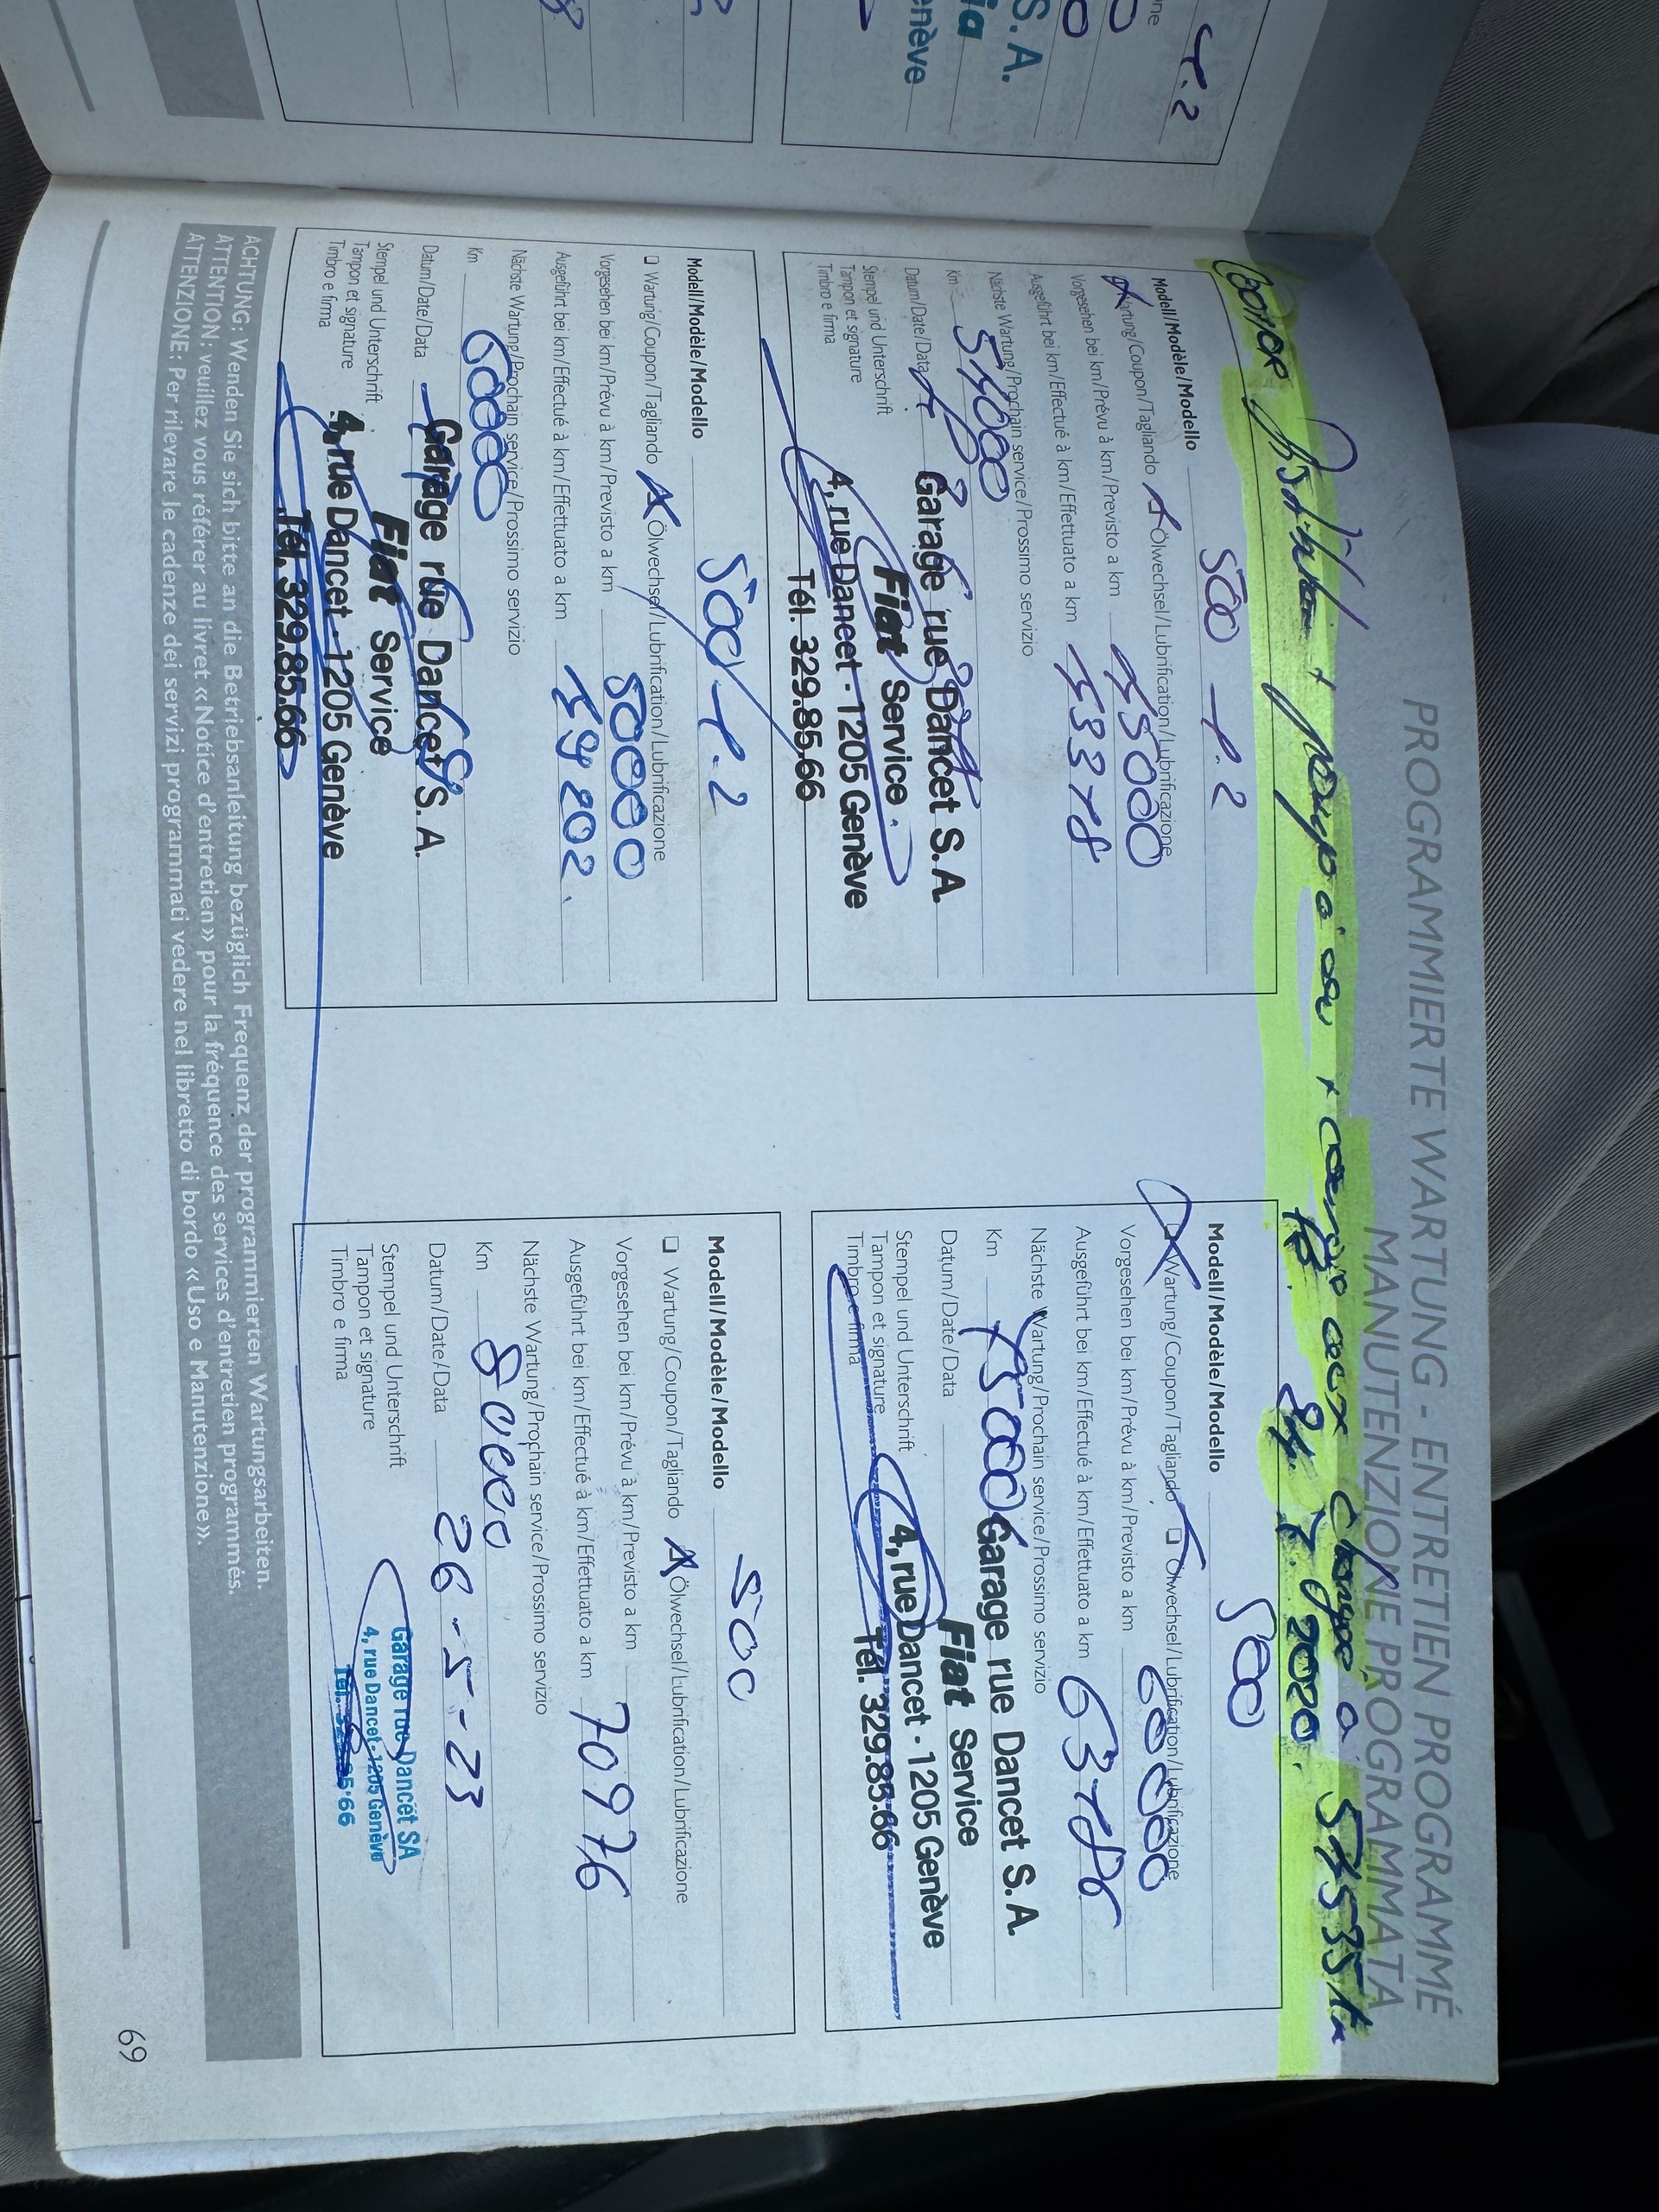 PROGRAMMIERTE WARTUNG - ENTRETIEN PROGRAMMÉ
MANUTENZIONE PROGRAMMATA
+ pompe à eau + courroie change à
2020.
Modell/Modèle/Modello 500 1.2
Wartung/Coupon/Tagliando X Ölwechsel/Lubrification/Lubrificazione
Vorgesehen bei km/Prévu à km/Previsto a km
Ausgeführt bei km/Effectué à km/Effettuato a km
Nächste Wartung/Prochain service/Prossimo servizio
Km
Datum/Date/Data
Stempel und Unterschrift
Tampon et signature
Timbro e firma
Garage rue Dancet S.A.
Fiat Service
4, rue Dancet - 1205 Genève
Tél. 329.85.66
Modell/Modèle/Modello 500 1.2
❏ Wartung/Coupon/Tagliando X Ölwechsel/Lubrification/Lubrificazione
Vorgesehen bei km/Prévu à km/Previsto a km 50000
Ausgeführt bei km/Effectué à km/Effettuato a km
Nächste Wartung/Prochain service/Prossimo servizio
Km 60000
Datum/Date/Data
Stempel und Unterschrift
Tampon et signature
Timbro e firma
Garage rue Dancet S.A.
Fiat Service
4, rue Dancet - 1205 Genève
Tél. 329.85.66
Modell/Modèle/Modello 500
X Wartung/Coupon/Tagliando ❏ Ölwechsel/Lubrification/Lubrificazione
Vorgesehen bei km/Prévu à km/Previsto a km 60000
Ausgeführt bei km/Effectué à km/Effettuato a km 63786
Nächste Wartung/Prochain service/Prossimo servizio
Km 75000
Datum/Date/Data
Stempel und Unterschrift
Tampon et signature
Timbro e firma
Garage rue Dancet S.A.
Fiat Service
4, rue Dancet - 1205 Genève
Tél. 329.85.66
Modell/Modèle/Modello 500
❏ Wartung/Coupon/Tagliando X Ölwechsel/Lubrification/Lubrificazione
Vorgesehen bei km/Prévu à km/Previsto a km
Ausgeführt bei km/Effectué à km/Effettuato a km 70976
Nächste Wartung/Prochain service/Prossimo servizio
Km 80000
Datum/Date/Data 26-5-23
Stempel und Unterschrift
Tampon et signature
Timbro e firma
Garage rue Dancet SA
4, rue Dancet - 1205 Genève
ACHTUNG: Wenden Sie sich bitte an die Betriebsanleitung bezüglich Frequenz der programmierten Wartungsarbeiten.
ATTENTION: veuillez vous référer au livret «Notice d'entretien» pour la fréquence des services d'entretien programmés.
ATTENZIONE: Per rilevare le cadenze dei servizi programmati vedere nel libretto di bordo «Uso e Manutenzione».
69